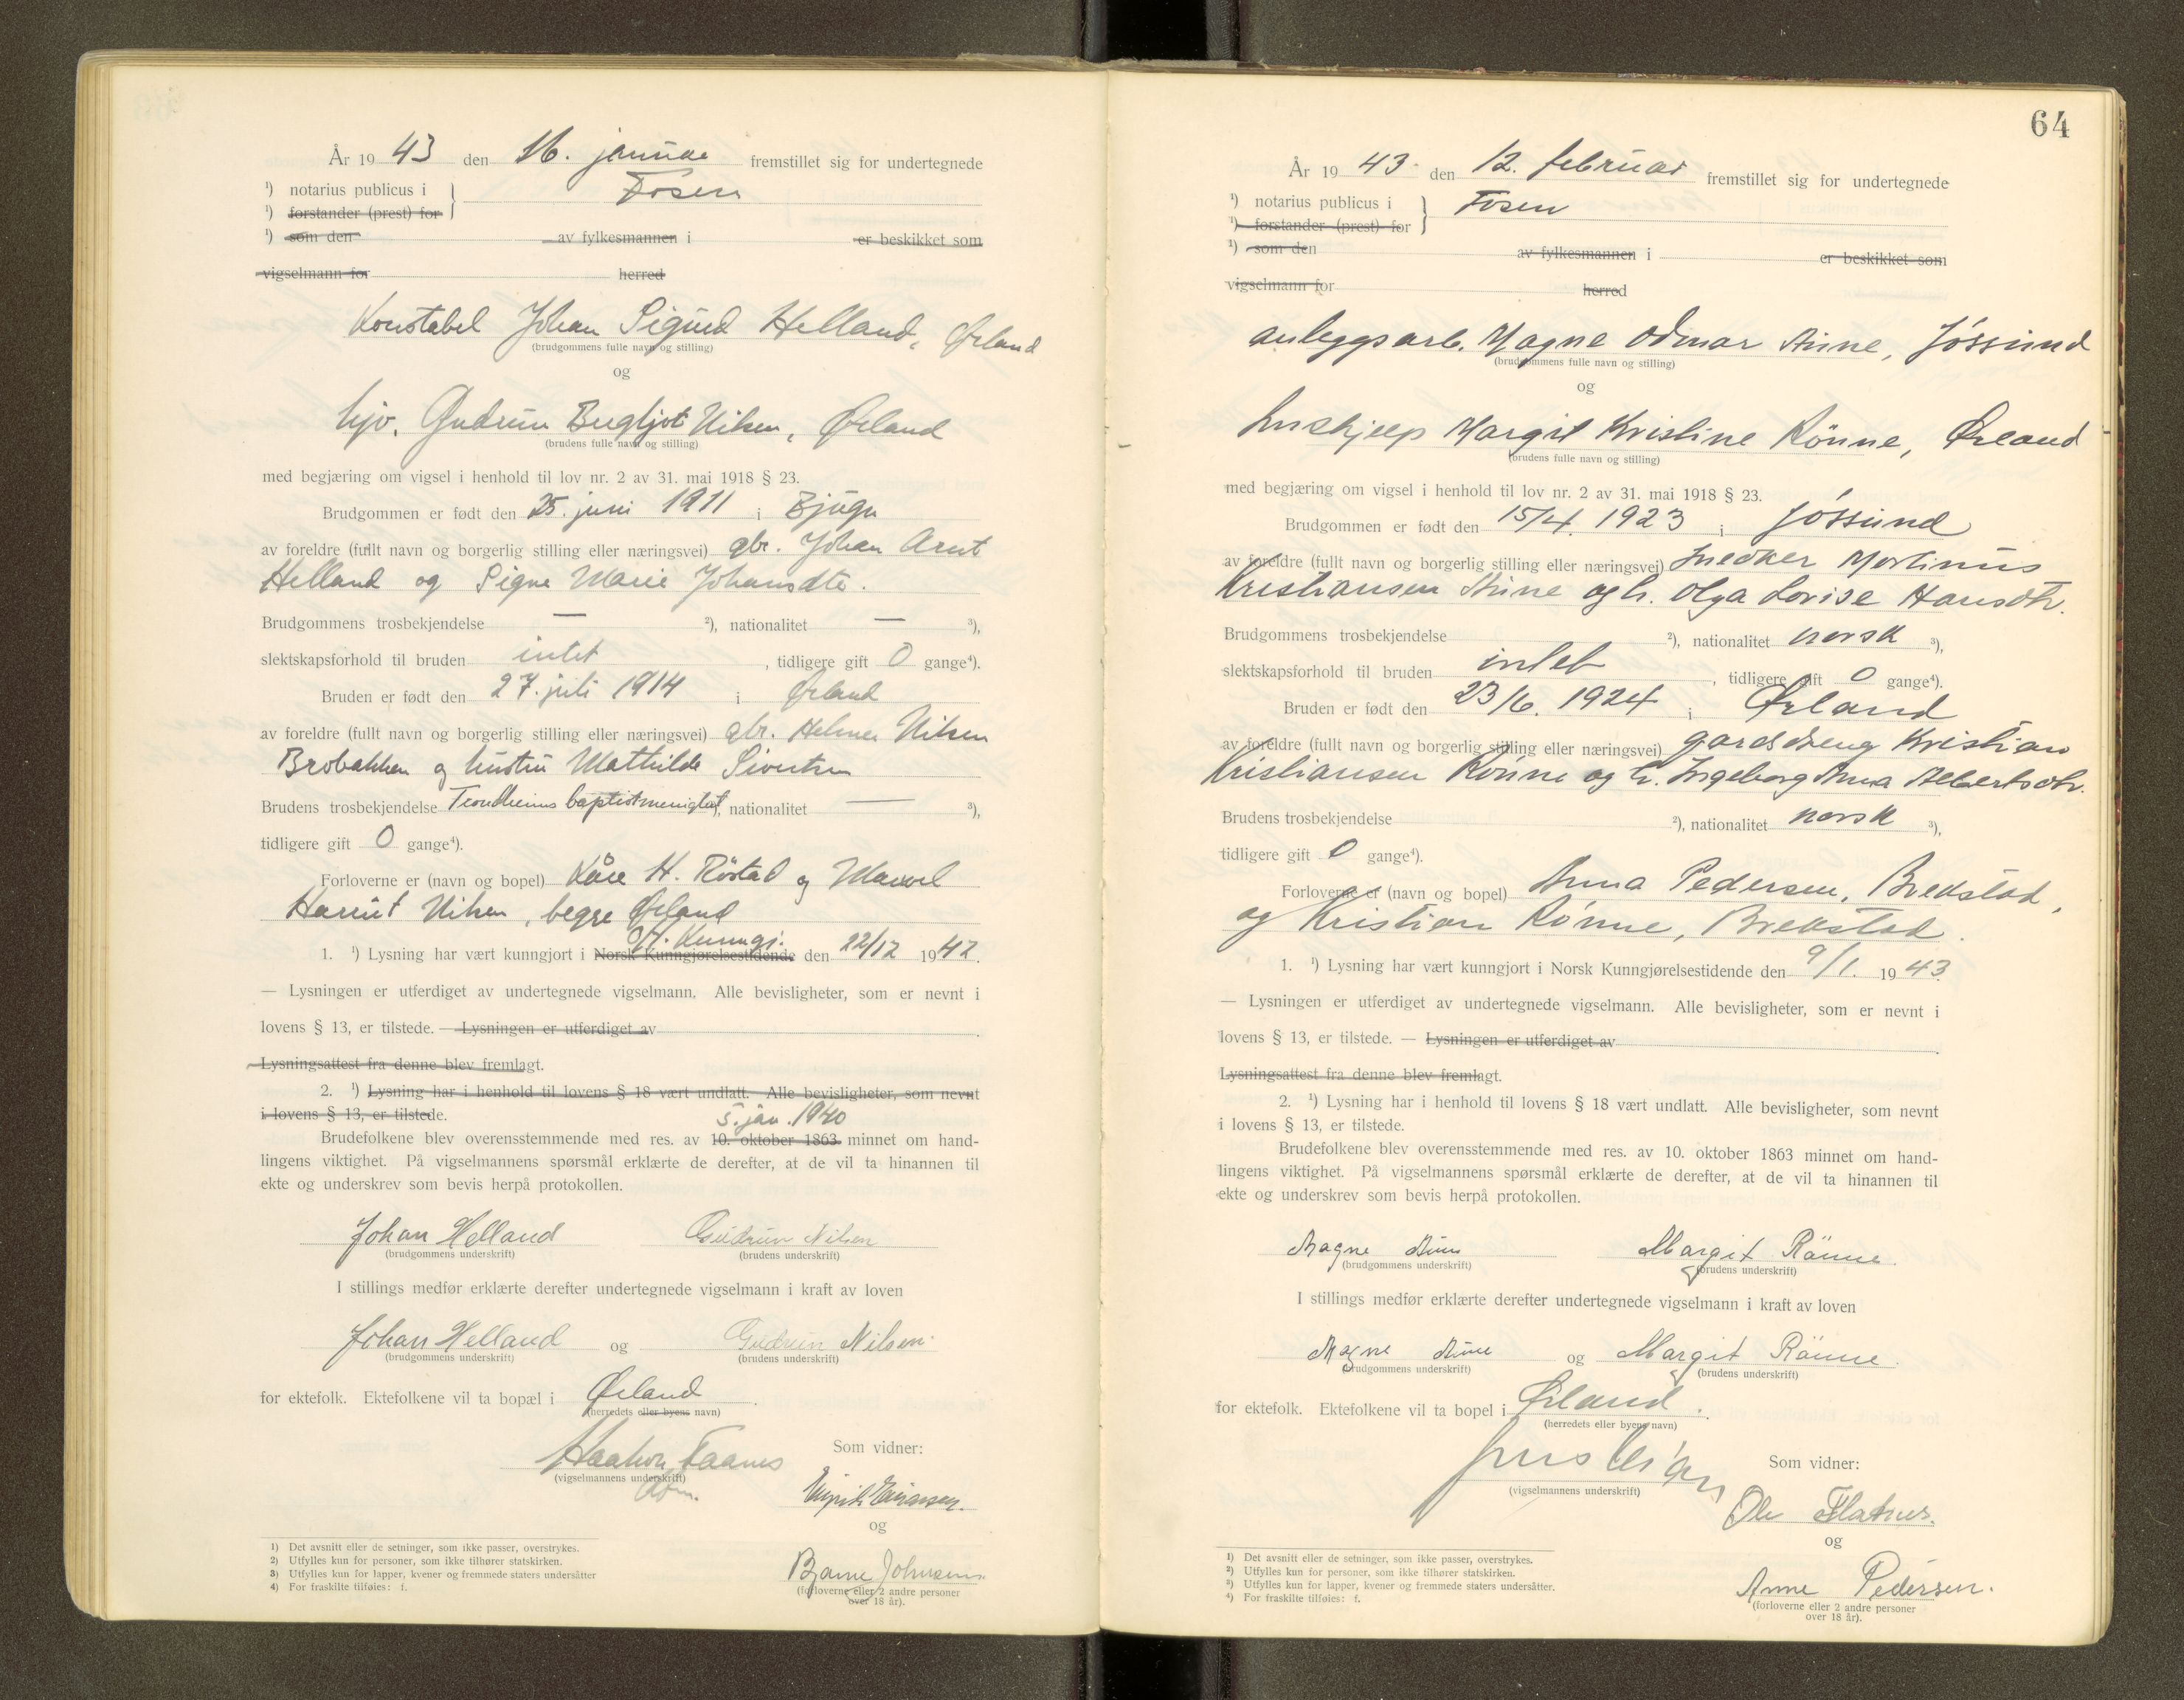 År 19 43 den 16. januar fremstillet sig for undertegnede
1) notarius publicus i } Fosen
1) forstander (prest) for
1) som den av fylkesmannen i er beskikket som
vigselmann for herred
Konstabel Johan Sigurd Helland, Ørland
(brudgommens fulle navn og stilling)
og
hjv. Gudrun Bergljot Nilsen, Ørland
(brudens fulle navn og stilling)
med begjæring om vigsel i henhold til lov nr. 2 av 31. mai 1918 § 23.
Brudgommen er født den 25. juni 1911 i Bjugn
av foreldre (fullt navn og borgerlig stilling eller næringsvei) gbr. Johan Arnt
Helland og Signe Marie Johansdtr.
Brudgommens trosbekjendelse — 2), nationalitet — 3),
slektskapsforhold til bruden intet, tidligere gift 0 gange4).
Bruden er født den 27. juli 1914 i Ørland
av foreldre (fullt navn og borgerlig stilling eller næringsvei) gbr. Helmer Nilsen
Brobakken og hustru Mathilde Sivertsen
Brudens trosbekjendelse Trondheims baptistmenighet, nationalitet — 3),
tidligere gift 0 gange4).
Forloverne er (navn og bopel) Kåre H. Röstad og
Harriet Nilsen, begge Ørland
H. Kunngj.
1. 1) Lysning har vært kunngjort i Norsk Kunngjørelsestidende den 22/12 1942.
— Lysningen er utferdiget av undertegnede vigselmann. Alle bevisligheter, som er nevnt i
lovens § 13, er tilstede. — Lysningen er utferdiget av .
Lysningsattest fra denne blev fremlagt.
2. 1) Lysning har i henhold til lovens § 18 vært undlatt. Alle bevisligheter, som nevnt
i lovens § 13, er tilstede.
5. jan. 1940
Brudefolkene blev overensstemmende med res. av 10. oktober 1863 minnet om hand-
lingens viktighet. På vigselmannens spørsmål erklærte de derefter, at de vil ta hinannen til
ekte og underskrev som bevis herpå protokollen.
Johan Helland Gudrun Nilsen
(brudgommens underskrift) (brudens underskrift)
I stillings medfør erklærte derefter undertegnede vigselmann i kraft av loven
Johan Helland og Gudrun Nilsen.
(brudgommens underskrift) (brudens underskrift)
for ektefolk. Ektefolkene vil ta bopæl i Ørland.
(herredets eller byens navn)
Haakon Faanes Som vidner:
(vigselmannens underskrift)
og
Bjarne Johnsen
(forloverne eller 2 andre personer
over 18 år).
1) Det avsnitt eller de setninger, som ikke passer, overstrykes.
2) Utfylles kun for personer, som ikke tilhører statskirken.
3) Utfylles kun for lapper, kvener og fremmede staters undersåtter
4) For fraskilte tilføies: f.
64
År 19 43 den 12. februar fremstillet sig for undertegnede
1) notarius publicus i } Fosen
1) forstander (prest) for
1) som den av fylkesmannen i er beskikket som
vigselmann for herred
anleggsarb. Magne Odmar Aune, Jössund
(brudgommens fulle navn og stilling)
og
hushjelp Margit Kristine Rönne, Ørland
(brudens fulle navn og stilling)
med begjæring om vigsel i henhold til lov nr. 2 av 31. mai 1918 § 23.
Brudgommen er født den 15/4. 1923 i Jössund
av foreldre (fullt navn og borgerlig stilling eller næringsvei) snedker Martinus
Kristiansen Aune og h. Olga Lovise Hansdtr.
Brudgommens trosbekjendelse 2), nationalitet norsk 3),
slektskapsforhold til bruden intet, tidligere gift 0 gange4).
Bruden er født den 23/6. 1924 i Ørland
av foreldre (fullt navn og borgerlig stilling eller næringsvei) gårdsdreng Kristian
Kristiansen Rönne og h. Ingeborg Anna Albertsdtr.
Brudens trosbekjendelse 2), nationalitet norsk 3),
tidligere gift 0 gange4).
Forloverne er (navn og bopel) Anna Pedersen, Brekstad,
og Kristian Rönne, Brekstad.
1. 1) Lysning har vært kunngjort i Norsk Kunngjørelsestidende den 9/1. 1943.
— Lysningen er utferdiget av undertegnede vigselmann. Alle bevisligheter, som er nevnt i
lovens § 13, er tilstede. — Lysningen er utferdiget av .
Lysningsattest fra denne blev fremlagt.
2. 1) Lysning har i henhold til lovens § 18 vært undlatt. Alle bevisligheter, som nevnt
i lovens § 13, er tilstede.
Brudefolkene blev overensstemmende med res. av 10. oktober 1863 minnet om hand-
lingens viktighet. På vigselmannens spørsmål erklærte de derefter, at de vil ta hinannen til
ekte og underskrev som bevis herpå protokollen.
Magne Aune Margit Rönne.
(brudgommens underskrift) (brudens underskrift)
I stillings medfør erklærte derefter undertegnede vigselmann i kraft av loven
Magne Aune og Margit Rönne.
(brudgommens underskrift) (brudens underskrift)
for ektefolk. Ektefolkene vil ta bopel i Ørland.
(herredets eller byens navn)
Som vidner:
(vigselmannens underskrift)
Ole
og
Anne Pedersen.
(forloverne eller 2 andre personer
over 18 år).
1) Det avsnitt eller de setninger, som ikke passer, overstrykes.
2) Utfylles kun for personer, som ikke tilhører statskirken.
3) Utfylles kun for lapper, kvener og fremmede staters undersåtter.
4) For fraskilte tilføies: f.